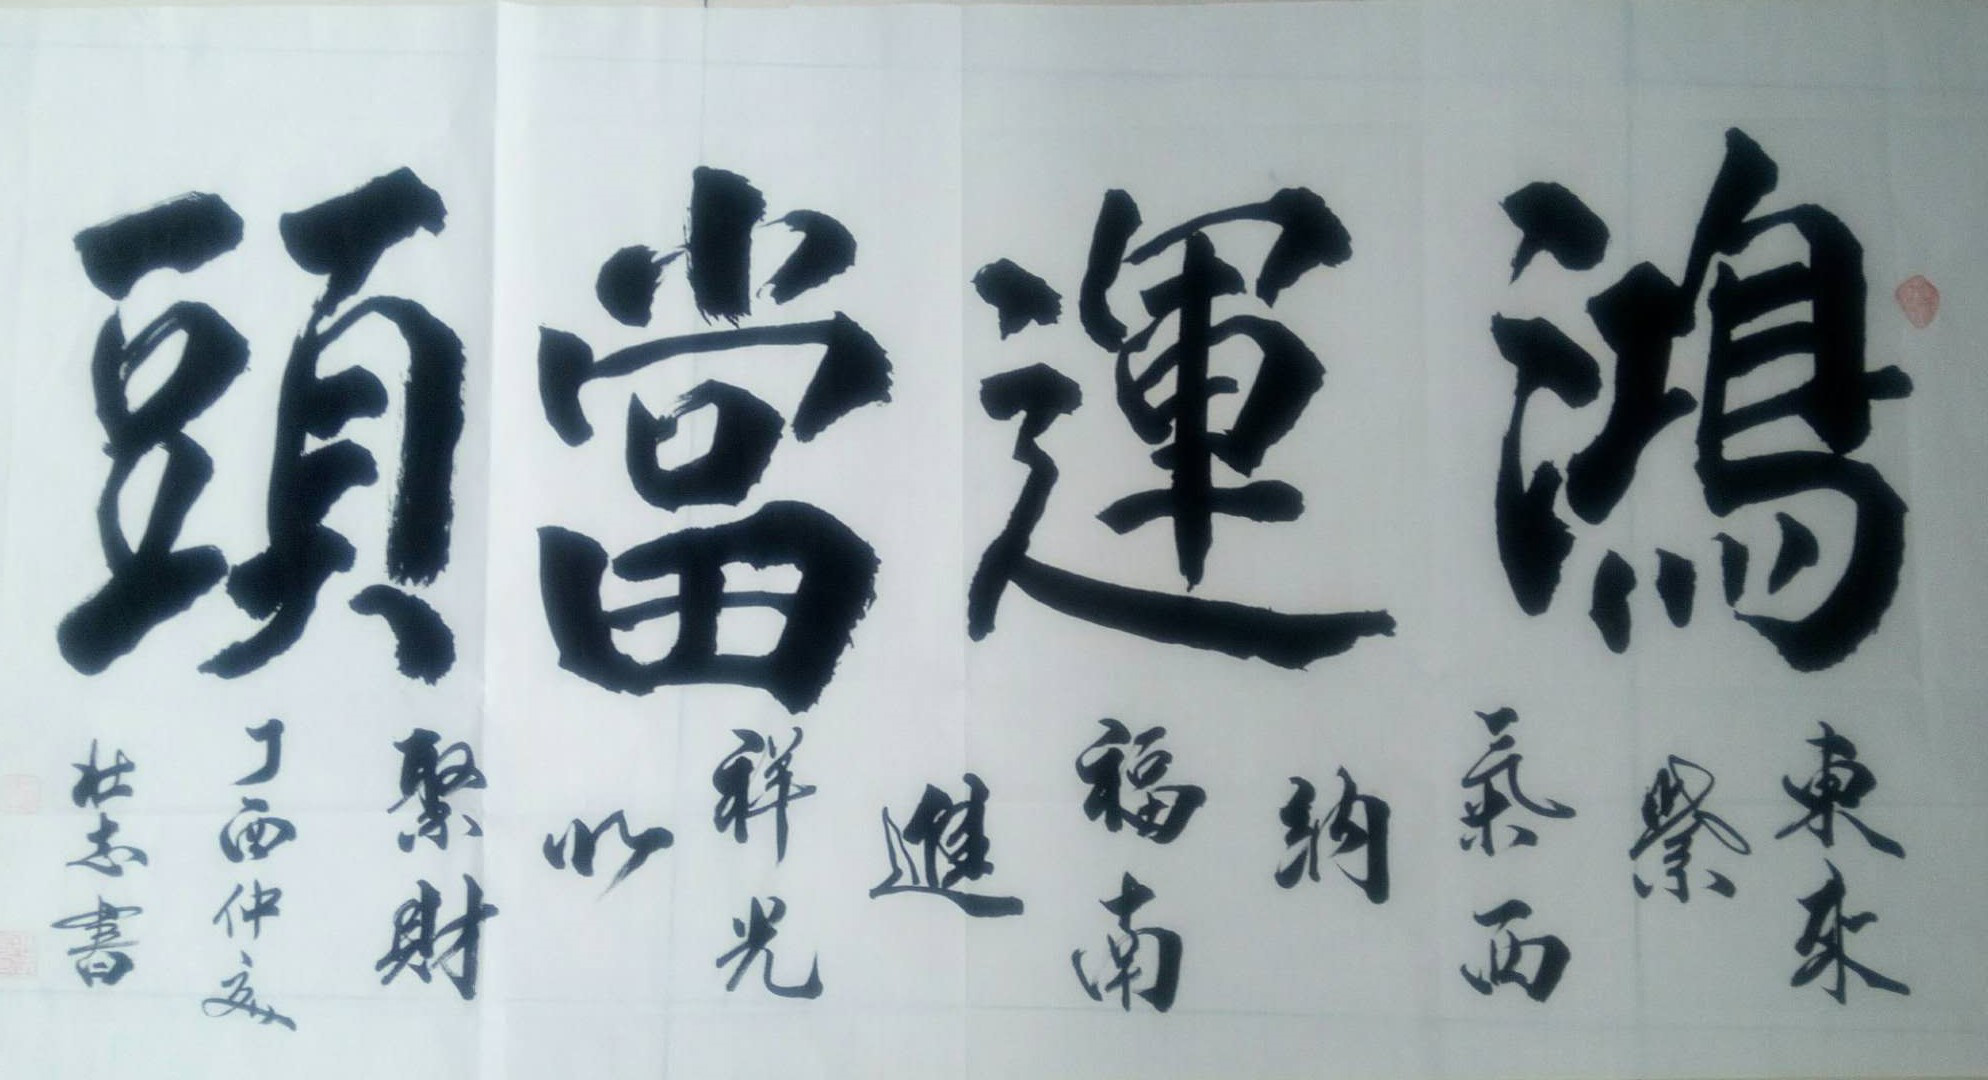 鴻運當頭
東來
紫
氣西
納
福南
進
祥光
北
聚財
丁酉仲夏
壯志書